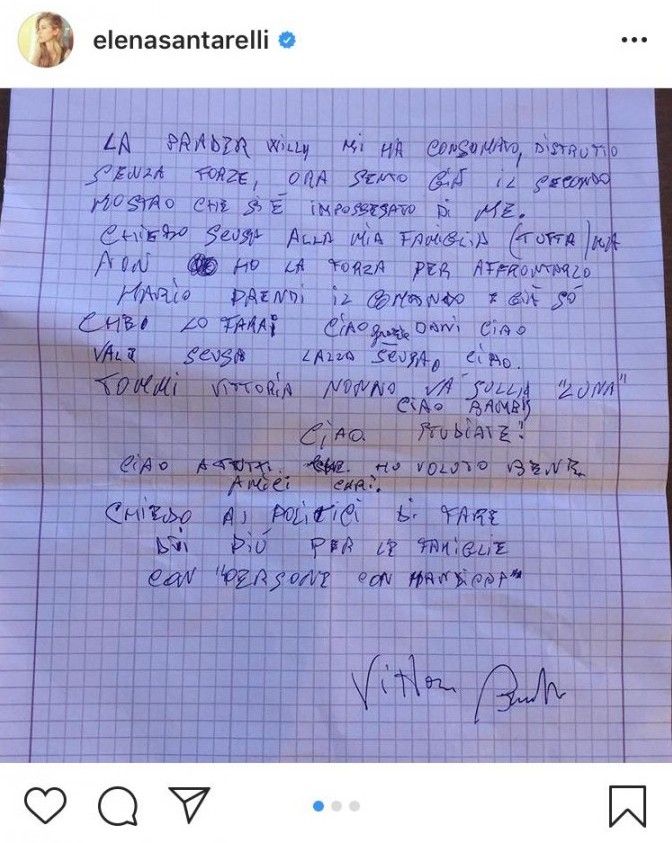 elenasantarelli
LA PRADER WILLY MI HA CONSUMATO, DISTRUTTO
SENZA FORZE, ORA SENTO GIÀ IL SECONDO
MOSTRO CHE SI È IMPOSSESATO DI ME.
CHIEDO SCUSA ALLA MIA FAMIGLIA (TUTTA) MA
NON HO LA FORZA PER AFFRONTARLO
MARIO PRENDI IL COMANDO E GIÀ SÒ
CHE LO FARAI CIAO grazie DANI CIAO
VALE SCUSA LALLA SCUSA, CIAO.
TOMMI VITTORIA NONNO VÀ SULLA "LUNA"
CIAO BAMBI
CIAO STUDIATE!
CIAO A TUTTI. HO VOLUTO BENE
AMICI CARI.
CHIEDO AI POLITICI DI FARE
DI PIÙ PER LE FAMIGLIE
CON "PERSONE CON HANDICAP"